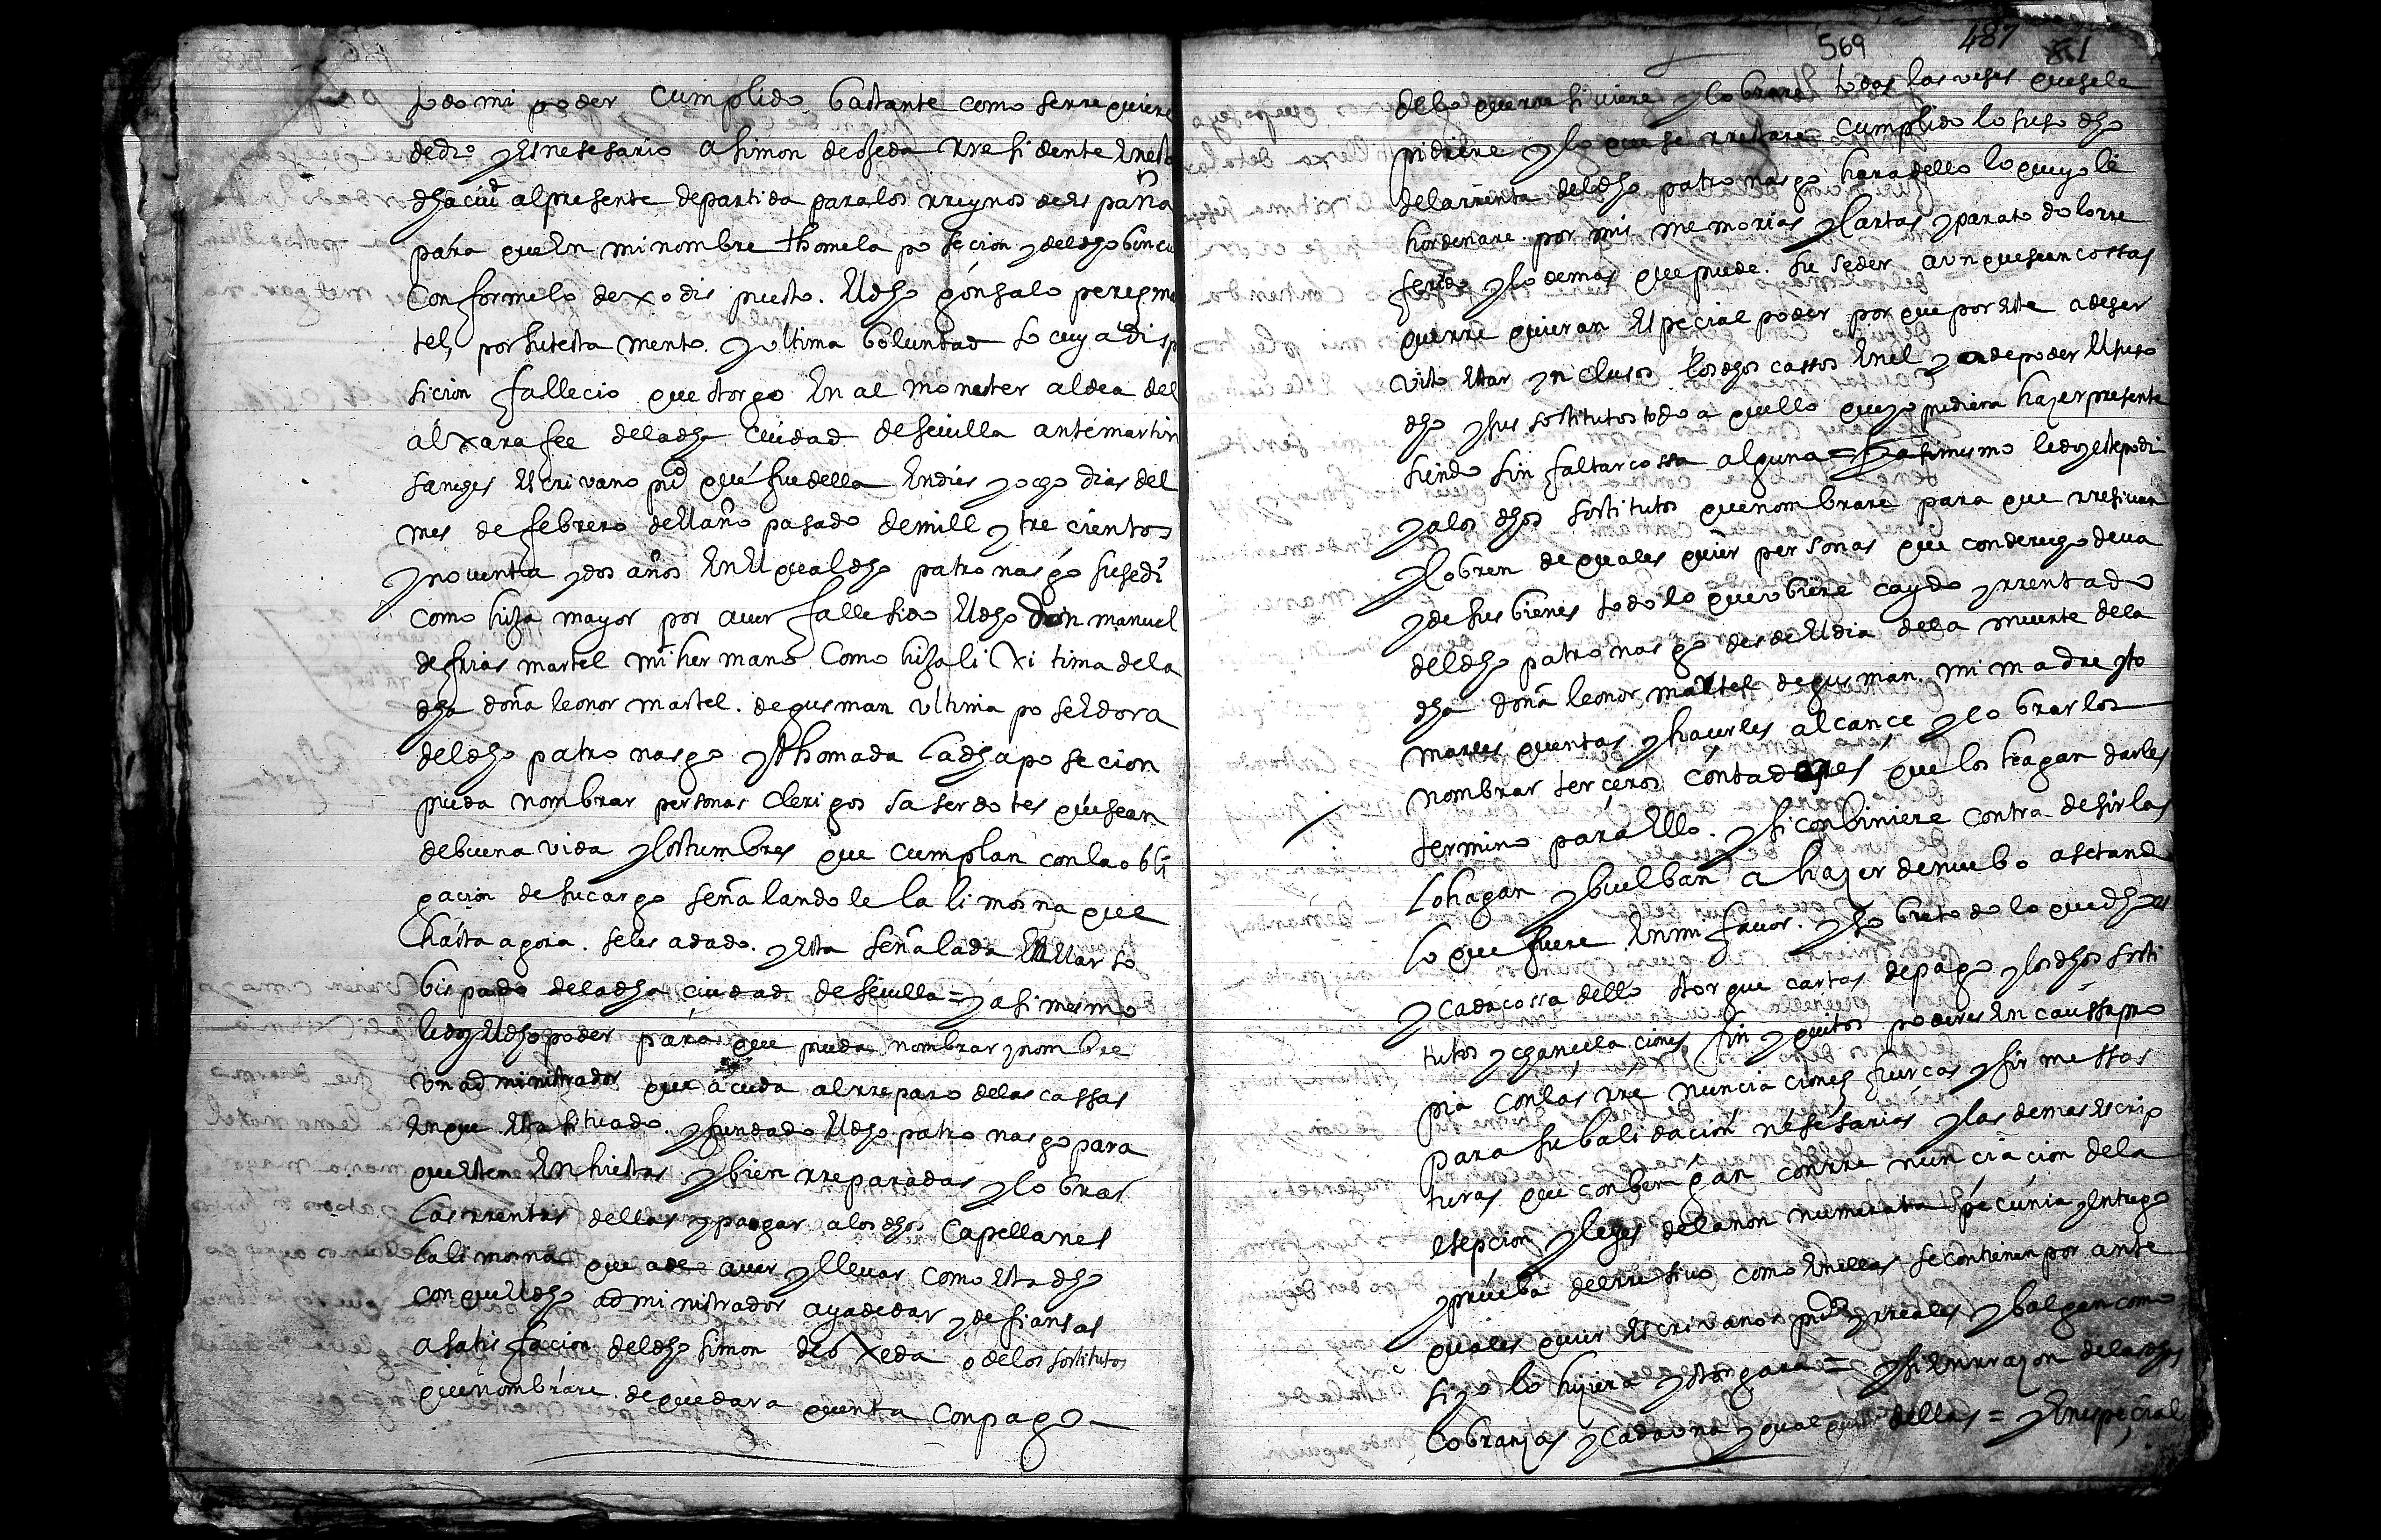 todo mi poder cumplido bastante como se rrequiere
de dro y es nesesario a simon de ojeda rresidente en esta
dha ciud al presente de partida para los rreynos de españa
para que en mi nombre thome la posecion del dho bincu
conforme lo dexo dispuesto el dho gonsalo peres mar
tel, por su testamento y ultima boluntad so cuya disp
sicion fallecio que otorgo en al monester aldea del
alxarafee de la dha ciudad de seuilla ante martin
sanches escrivano puco que fue della en dies y ocho dias del
mes de febrero del año pasado de mill y trecientos
y noventa y dos años en el qual dho patronasgo susedi
como hija mayor por auer fallesido el dho don manuel
de frias martel mi hermano como hija lixitima de la
dha doña leonor martel de gusman ultima poseedora
del dho patronasgo y thomada la dha posecion
pueda nombrar personas clerigos saserdotes que sean
de buena vida y costumbres que cumplan con la obli
gacion de su cargo señalandole la limosna que
hasta agora se les a dado y esta señalada en el arso
bispado de la dha ciudad de seuilla = y asi mesmo
le doy el dho poder para que pueda nombrar y nombre
un administrador que acuda al rreparo de las cassas
en que esta situado y fundado el dho patronasgo para
que esten enhiestas y bien rreparadas y cobrar
las rrentas dellas y paagar a los dhos capellanes
la limosna que a de auer y lleuar como esta dho
con que el dho administrador aya de dar y de fiansas
a satisfacion del dho simon de oxeda o de los sostitutos
que nombrare de que dara quenta con pago
569 487 81
de lo que rresiuiere y cobrare todas las veses que se le
pidiere y lo que se rrestare cumplido lo suso dho
de la rrenta del dho patronasgo hara dello lo que yo le
hordenare por mis memorias y cartas y para todo lo rre
ferido y lo demas que puede suseder aunque sean cossas
que rrequieran especial poder por que por este a de ser
visto estar ynclusos los dhos cassos en el y a de poder el suso
dho y sus sostitutos todo aquello que yo pudiera hazer presente
siendo sin faltar cossa alguna = y asi mesmo le doy este podr
y a los dhos sostitutos que nombrare para que rresiuan
y cobren de quales quier personas que con derecho deua
y de sus bienes todo lo que vbiere caydo y rrentado
del dho patronasgo desde el dia de la muerte de la
dha doña leonor martel de gusman mi madre y to
marles quentas y hacerles alcançe y cobrar los
nombrar terçeros contadores que los hagan darles
termino para ello y si conbiniere contradesirlas
lo hagan y buelban a hazer de nuebo asetando
lo que fuere en mi fauor y so bre todo lo que dho es
y cada cossa dello otorgue cartas de pago y los dhos sosti
tutos y chancelaciones fin y quitos poderes en caussa pro
pia con las rrenunciaciones fuercas y firmessas
para su balidacion nesesarias y las demas escrip
turas que conbengan con rrenunciacion de la
esepcion y leyes de la non numerata pecunia y entrego
y prueba del rresiuo como en ellas se contienen por ante
quales quier escrivanos pucos y rreales y balgan como
si yo lo hiziera y otorgara = y si en rrazon de las dhas
cobranzas y cada una y qual quier dellas = y en especial